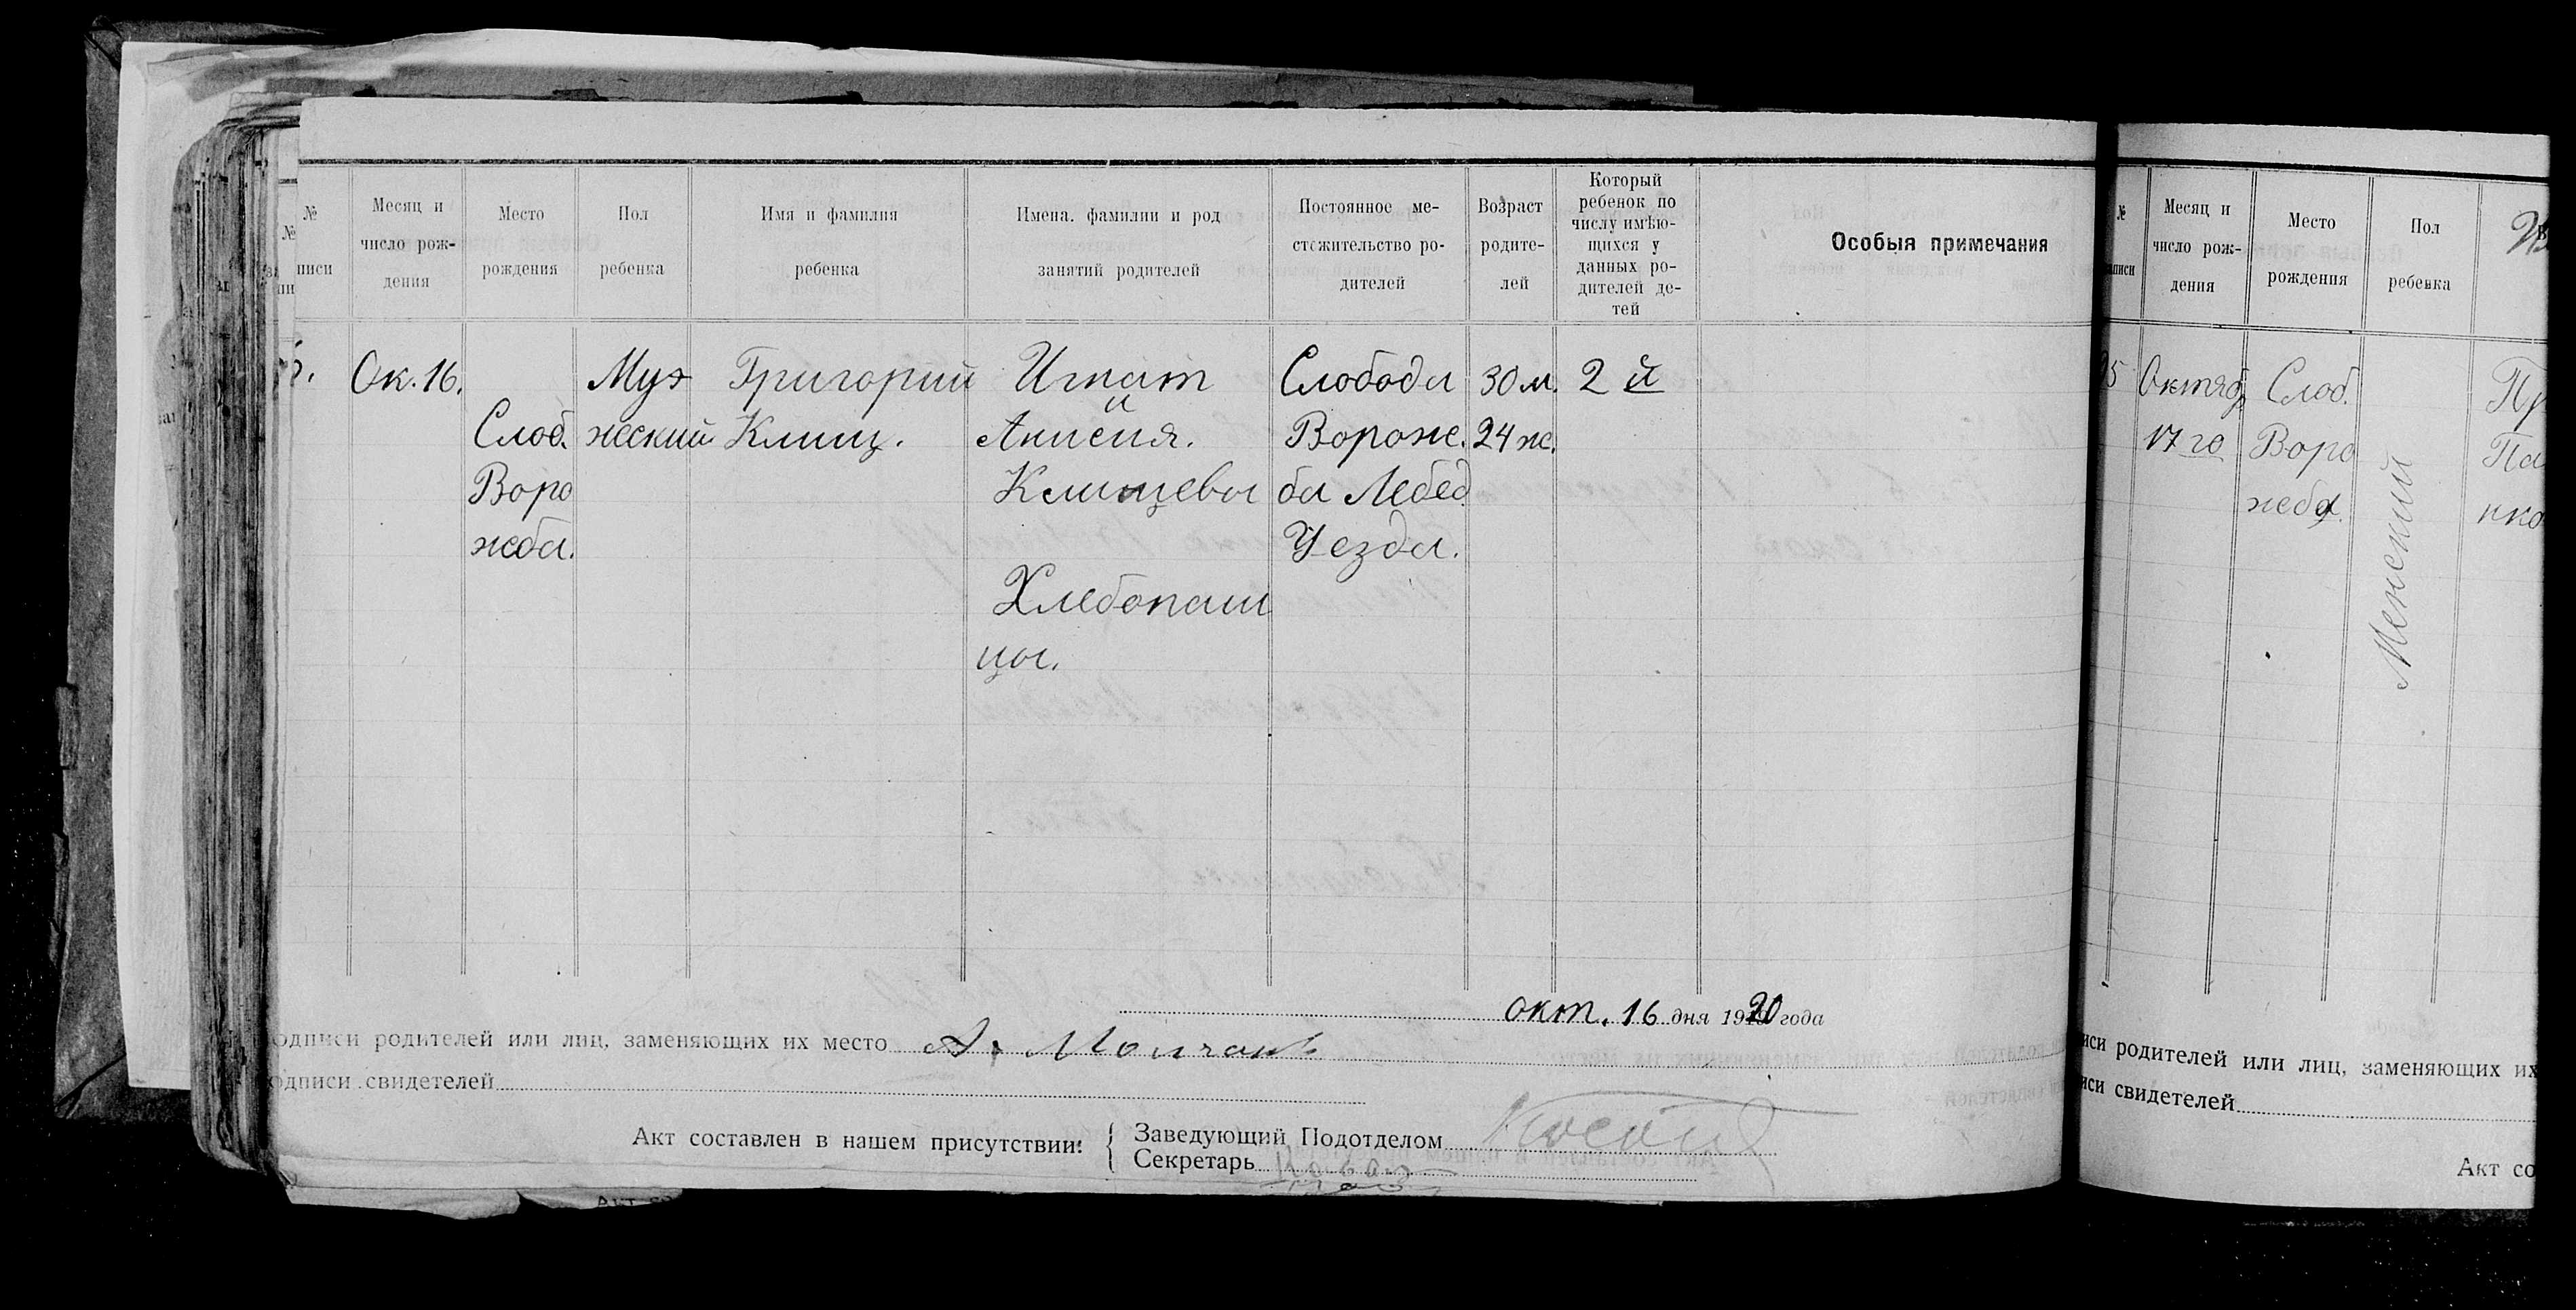 №
писи
Месяц и
число рож-
дения
Место
рождения
Пол
ребенка
Имя и фамилия
ребенка
Имена. фамилии и род
занятий родителей
Постоянное ме-
стожительство ро-
дителей
Возраст
родите-
лей
Который
ребенок по
числу имѣю-
щихся у
данных ро-
дителей де-
тей
Особыя примечания
Ок. 16.
Слоб.
Воро
жба.
Муж
жеский
Григорий
Клищ.
Игнат
и
Анисия.
Клищевы
Хлебопаш
цы.
Слобода
Ворож.
ба Лебед.
Уезда.
30 м.
24 ж.
2 й
окт. 16 дня 1920 года
одписи родителей или лиц, заменяющих их место А. Молчан
одписи свидетелей
Акт составлен в нашем присутствии:
Заведующий Подотделом
Секретарь
№
писи
Месяц и
число рож-
дения
Место
рождения
Пол
ребенка
5
Октяб
17 го
Слоб.
Воро
жеба.
Женский
Пр
Па
нко
иси родителей или лиц, заменяющих их
иси свидетелей
Акт со